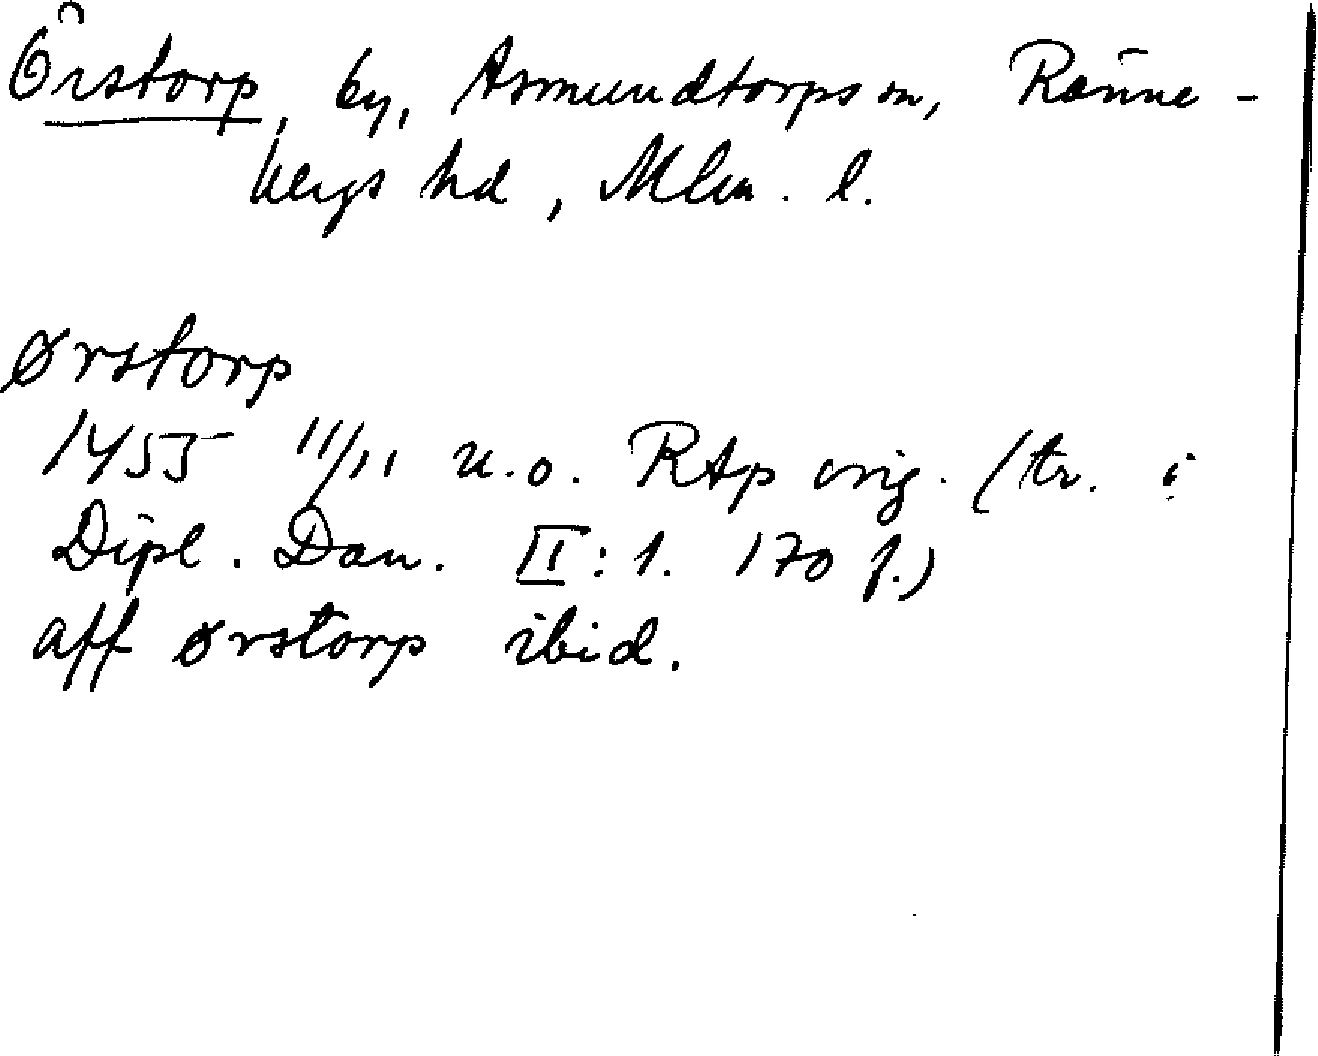 Örstorp, by, Asmundtorps sn, Rönne-
bergs hd, Mlm. l.
Ørstorp
1455 11/11 u.o. RAp orig. (tr. i
Dipl. Dan. II:1. 170 f.)
aff ørstorp ibid.